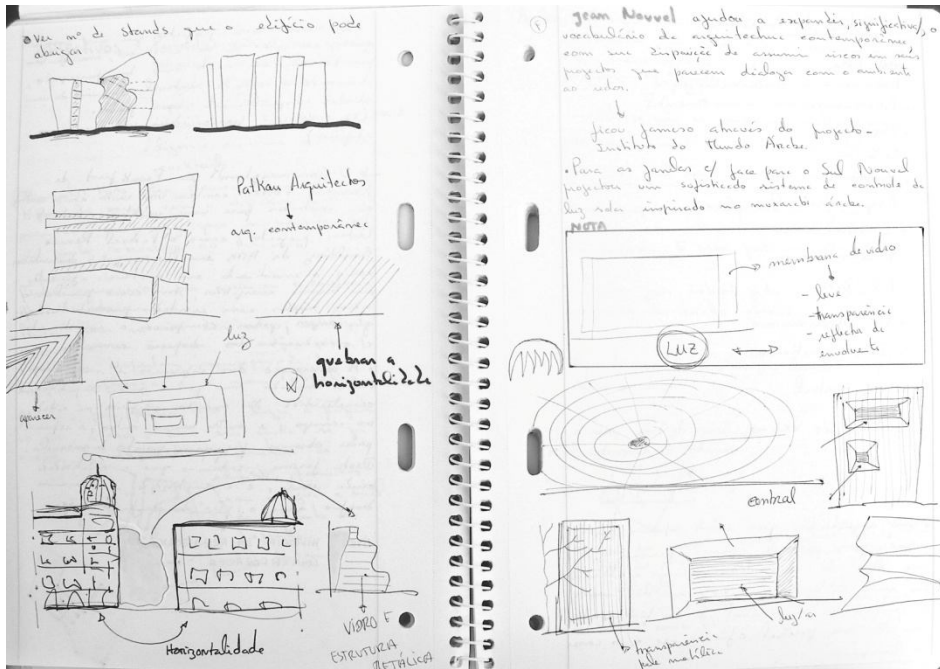 ver nº de stands que o edifício pode
abrigar
Patkau Arquitectos
arq. contemporânea
luz
quebrar a
horizontalidade
N
aparecer
Horizontalidade
VIDRO E
ESTRUTURA
METÁLICA
Jean Nouvel ajudou a expandir, significativ/, o
vocabulário da arquitectura contemporânea
com sua disposição de assumir riscos em seus
projectos que parecem dialogar com o ambiente
ao redor.
ficou famoso através do projecto-
Instituto do Mundo Árabe
• Para as janelas c/ face para o Sul Nouvel
projectou um sofisticado sistema de controle de
luz solar inspirado no muxarabi árabe.
NOTA
membrana de vidro
- leve
- transparência
- reflecte
envolvente
LUZ
central
luz/ar
transparência
pele metálica